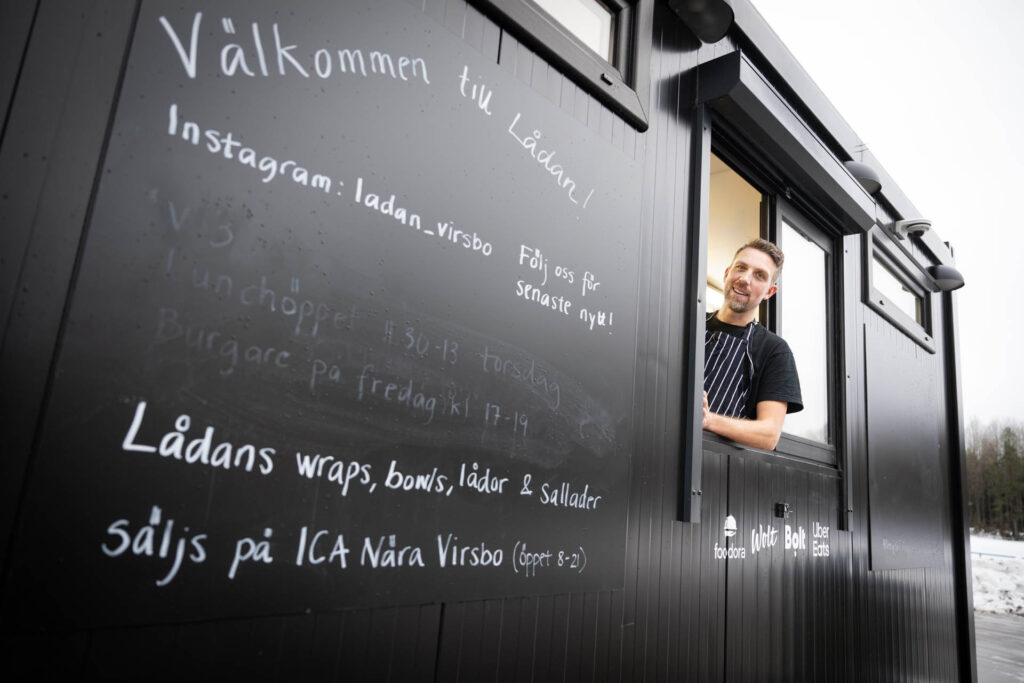 Välkommen till Lådan!
Instagram: ladan_virsbo
Följ oss för
senaste nytt!
V 3
Lunchöppet 11.30-13 torsdag
Burgare på fredag kl 17-19
Lådans wraps, bowls, lådor & sallader
säljs på ICA Nära Virsbo (öppet 8-21)
foodora Wolt Bolt Uber
Eats